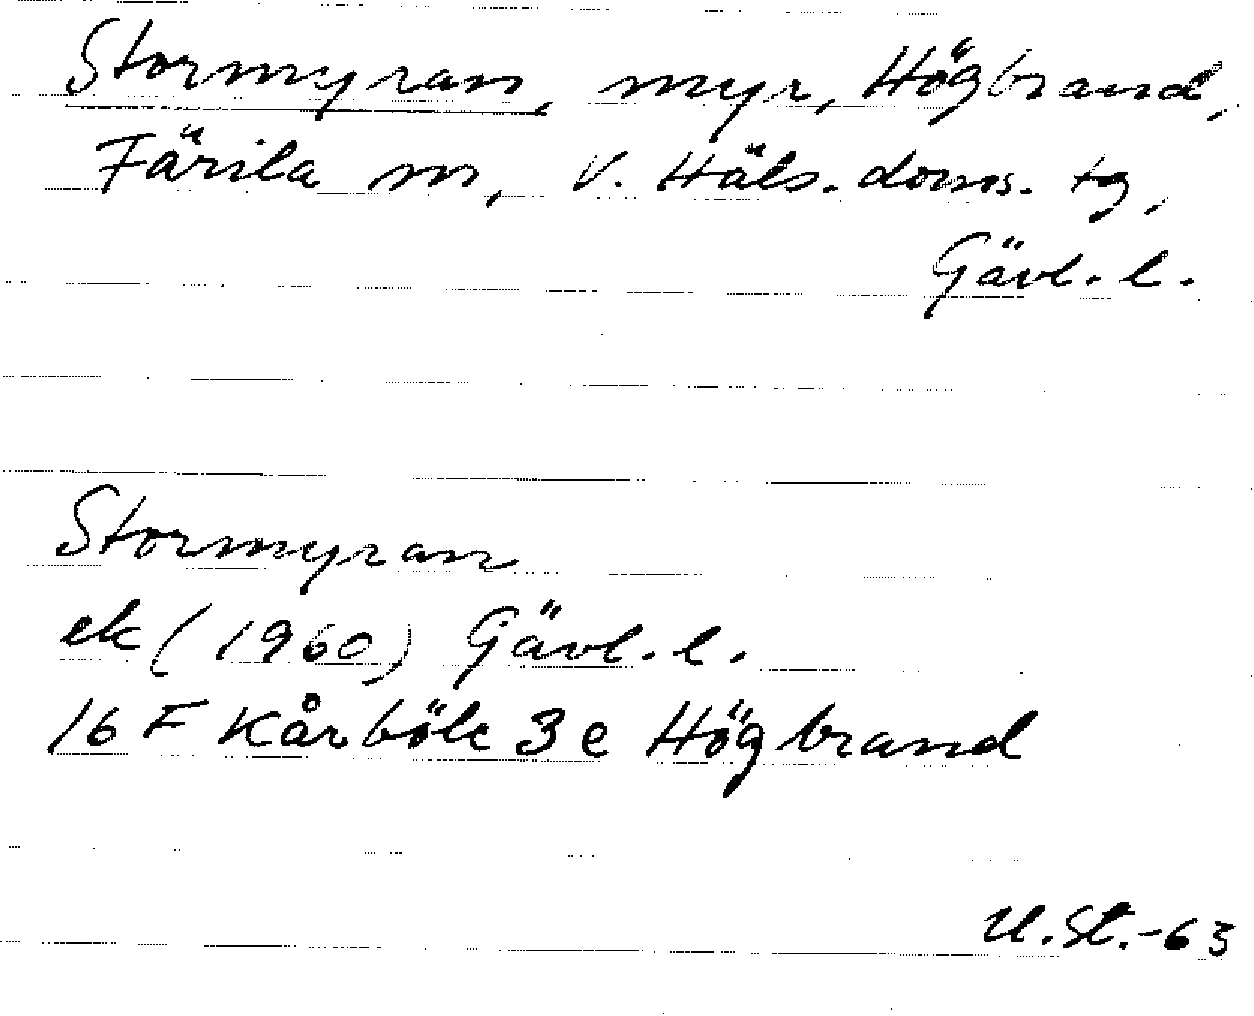 Stormyran, myr, Högbrand,
Färila sn, V. Häls. doms. tg,
Gävl. l.
Stormyran
ek (1960) Gävl. l.
16 F Kårböle 3 e Högbrand
U. St. -63